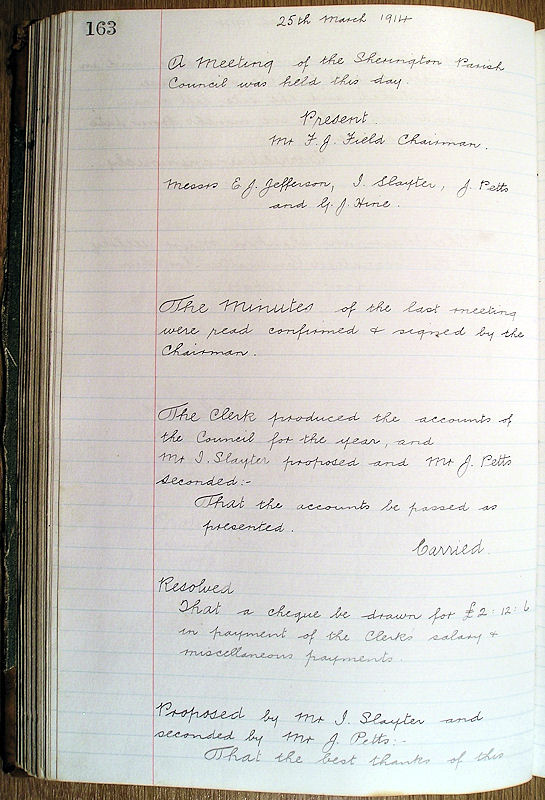 163
25th March 1914
A Meeting of the Sherington Parish
Council was held this day.
Present.
Mr F. J. Field Chairman.
Messrs E. J. Jefferson, I. Slayter, J. Petts
and G. J. Hine.
The Minutes of the last meeting
were read confirmed & signed by the
Chairman.
The Clerk produced the accounts of
the Council for the year, and
Mr I. Slayter proposed and Mr J. Petts
seconded:-
That the accounts be passed as
presented.
Carried.
Resolved
That a cheque be drawn for £2:12:6
in payment of the Clerks salary &
miscellaneous payments.
Proposed by Mr I. Slayter and
seconded by Mr J. Petts:-
That the best thanks of this